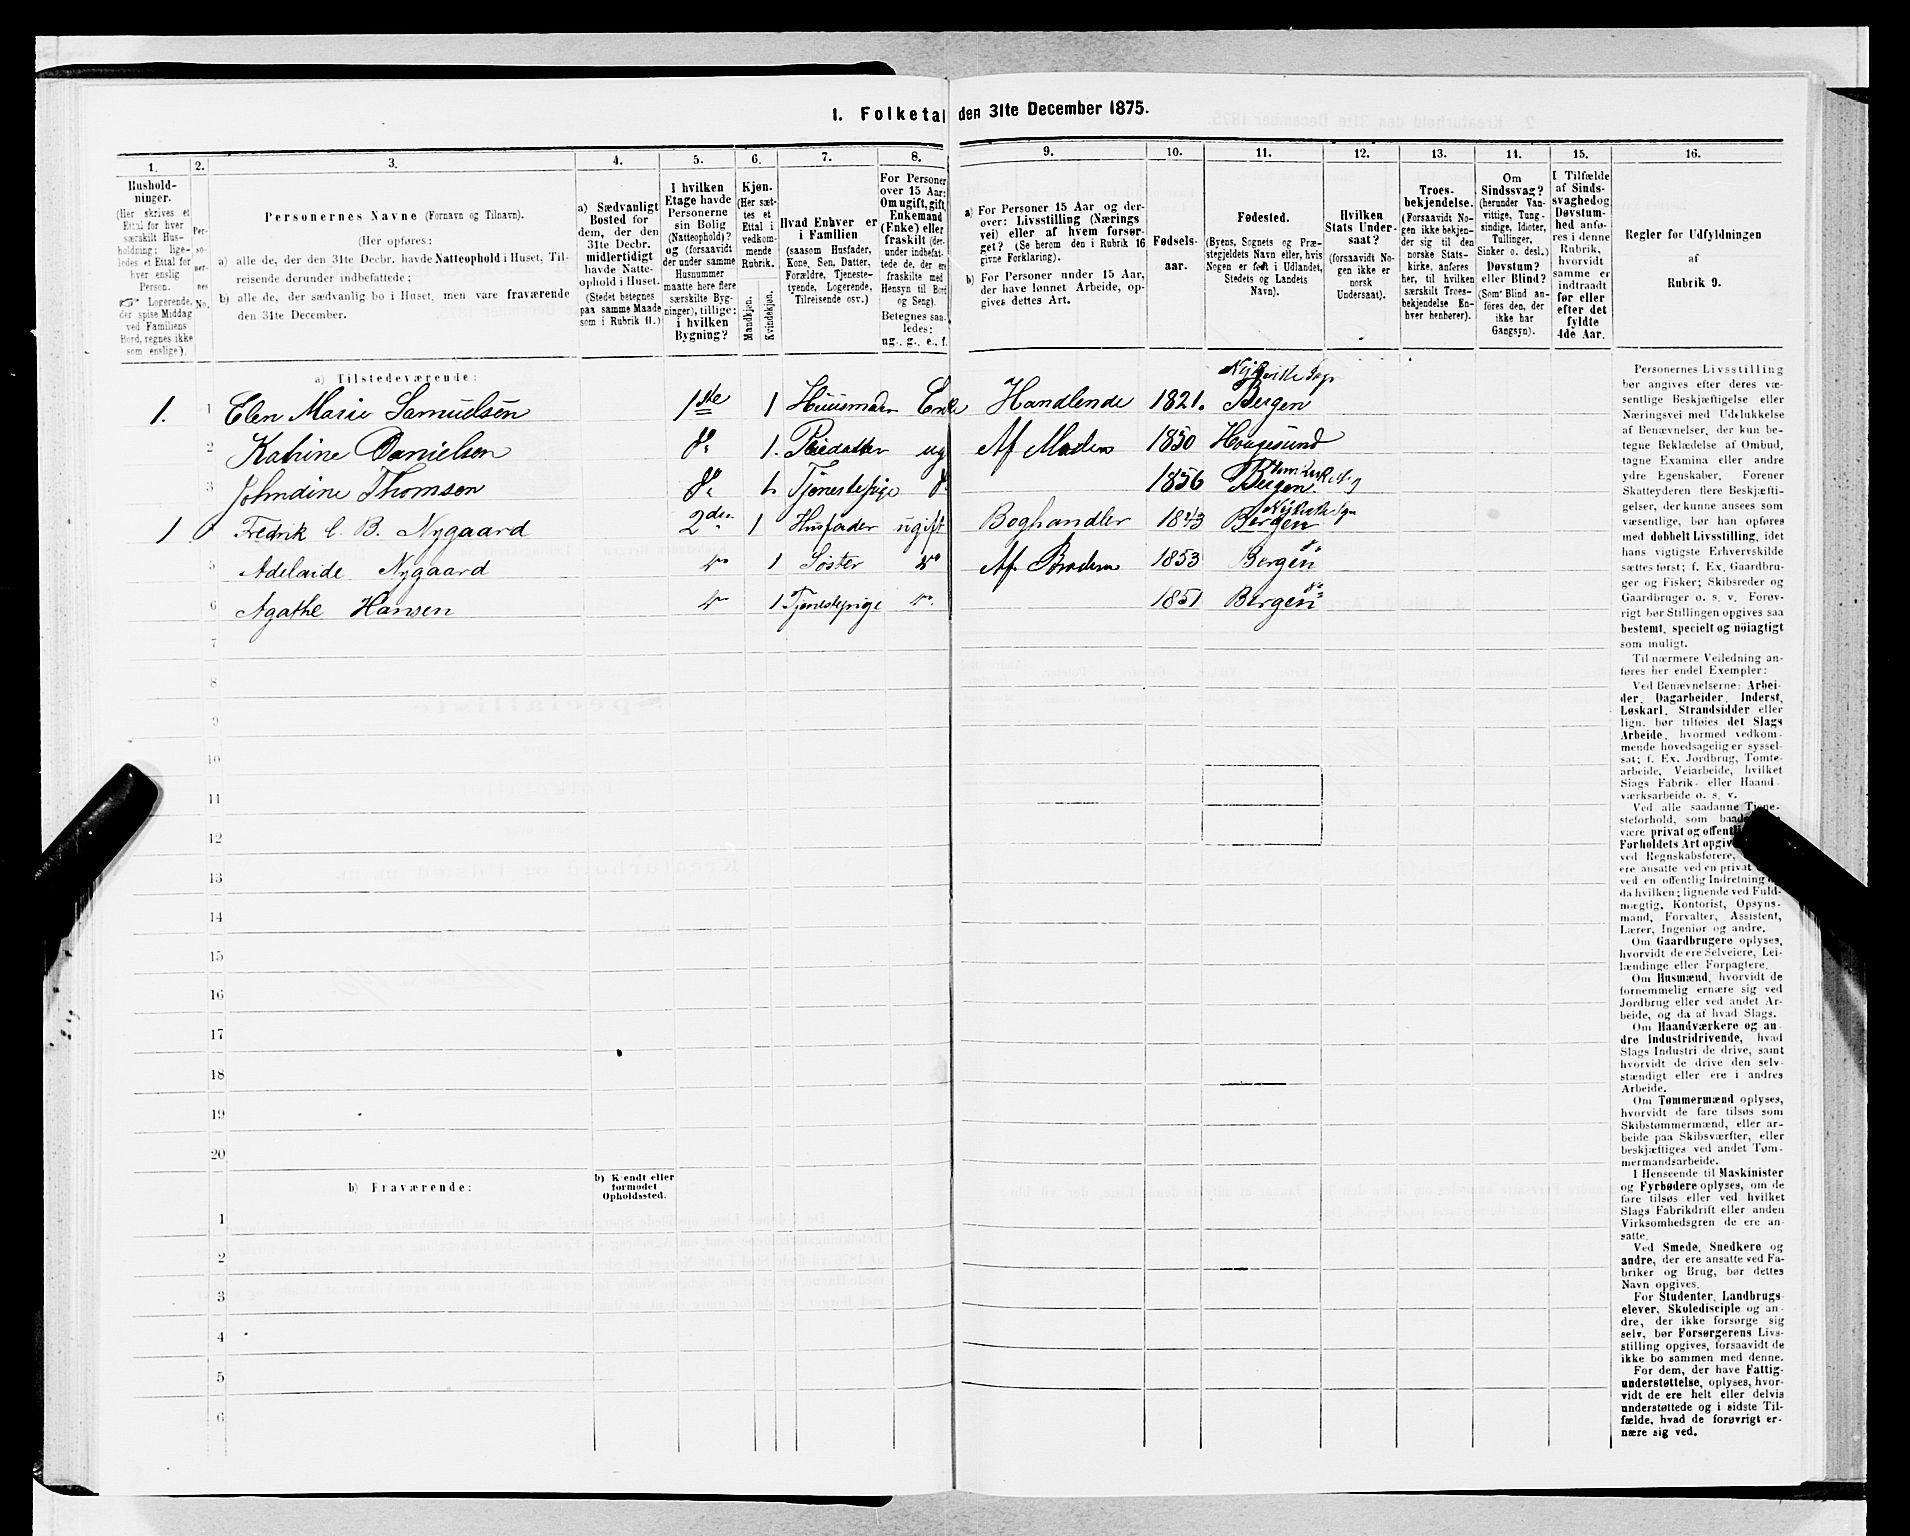 1. Folketal den 31te December 1875.
1. 2. 3. 4. 5. 6. 7. 8. 9. 10. 11. 12. 13. 14. 15. 16.
Hushold-
ninger.
(Her skrives et
Ettal for hver
særskilt Hus-
holdning; lige-
ledes et Ettal for
hver enslig
Person.
☞ Logerende,
der spise Middag
ved Familiens
Bord, regnes ikke
som enslige).
Per-
so-
ner-
nes
No.
Personernes Navne (Fornavn og Tilnavn).
(Her opføres:
a) alle de, der den 31te Decbr. havde Natteophold i Huset, Til-
reisende derunder indbefattede;
b) alle de, der sædvanlig bo i Huset, men vare fraværende
den 31te December.
a) Sædvanligt
Bosted for
dem, der den
31te Decbr.
midlertidigt
havde Natte-
ophold i Huset.
(Stedet betegnes
paa samme Maade
som i Rubrik 11.)
I hvilken
Etage havde
Personerne
sin Bolig
(Natteophold)?
og (forsaavidt
der under samme
Husnummer
maatte høre flere
særskilte Byg-
ninger), tillige:
i hvilken
Bygning?
Kjøn.
(Her sæt-
tes et
Ettal i
vedkom-
mende
Rubrik.
Mandkjøn.
Kvindekjøn.
Hvad Enhver er
i Familien
(saasom Husfader,
Kone, Søn, Datter,
Forældre, Tjeneste-
tyende, Logerende,
Tilreisende osv.)
For Personer
over 15 Aar:
Om ugift, gift,
Enkemand
(Enke) eller
fraskilt (der-
under indbefat-
tede de, der ere
fraskilte med
Hensyn til Bord
og Seng).
Betegnes saa-
ledes:
ug., g., e., f.
a) For Personer 15 Aar og der-
over: Livsstilling (Nærings
vei) eller af hvem forsør-
get? (Se herom den i Rubrik 16
givne Forklaring).
b) For Personer under 15 Aar,
der have lønnet Arbeide, op-
gives dettes Art.
Fødsels-
aar.
Fødested.
(Byens, Sognets og Præ-
stegjeldets Navn eller, hvis
Nogen er født i Udlandet,
Stedets og Landets
Navn).
Hvilken
Stats Under-
saat?
(forsaavidt No-
gen ikke er
norsk
Undersaat).
Troes-
bekjendelse.
(Forsaavidt No-
gen ikke bekjen-
der sig til den
norske Stats-
kirke, anføres
her, til hvilken
særskilt Troes-
bekjendelse En-
hver henhører).
Om
Sindssvag?
(herunder Van-
vittige, Tung-
sindige, Idioter,
Tullinger,
Sinker o. desl.)
Døvstum?
eller Blind?
(Som Blind an-
føres den, der
ikke har
Gangsyn).
I Tilfælde
af Sinds-
svaghed og
Døvstum-
hed anfø-
res i denne
Rubrik,
hvorvidt
samme er
indtraadt
før eller
efter det
fyldte
4de Aar.
Regler for Udfyldningen
af
Rubrik 9.
a) Tilstedeværende:
1. 1 Elen Marie Samuelsen 1ste 1 Huusmoder Enke Handlende 1821. Nykirke Sogn Bergen
2 Katrine Danielsen do 1. Pleiedatter ug Af Moderen 1850 Hougesund
3 Johndine Thomsen do 1. Tjenestepige do 1856 Bergen
1 Fredrik C. B. Nygaard 2den 1 Husfader ugift Boghandler 1843 Nykirke Sgn Bergen
5 Adelaide Nygaard do 1 Søster do Af Broderen 1853 Bergen do
6 Agathe Hansen do 1 Tjenestepige do 1851 Bergen do
7
8
9
10
11
12
13
14
15
16
17
18
19
20
b) Fraværende:
b) Kjendt eller
formodet
Opholdssted.
1
2
3
4
5
6
Personernes Livsstilling
bør angives efter deres væ-
sentlige Beskjæftigelse eller
Næringsvei med Udelukkelse
af Benævnelser, der kun be-
tegne Beklædelse af Ombud,
tagne Examina eller andre
ydre Egenskaber. Forener
Skatteyderen flere Beskjæfti-
gelser, der kunne ansees som
væsentlige, bør han opføres
med dobbelt Livsstilling, idet
hans vigtigste Erhvervskilde
sættes først; f. Ex. Gaardbru-
ger og Fisker; Skibsreder og
Gaardbruger o. s. v. Forøv-
rigt bør Stillingen opgives saa
bestemt, specielt og nøiagtigt
som muligt.
Til nærmere Veiledning an-
føres her endel Exempler:
Ved Benævnelserne: Arbei-
der, Dagarbeider, Inderst,
Løskarl, Strandsidder eller
lign. bør tilføies det Slags
Arbeide, hvormed vedkom-
mende hovedsagelig er syssel-
sat; f. Ex. Jordbrug, Tomte-
arbeide, Veiarbeide, hvilket
Slags Fabrik- eller Haand-
værksarbeide o. s. v.
Ved alle saadanne Tjene-
steforhold, som
være privat og
Forholdets Art
ved Regnskabsførere,
ere ansatte ved en privat
ved en offentlig Indretning
da hvilken; lignende ved Fuld-
mægtig, Kontorist, Opsyns-
mand, Forvalter, Assistent,
Lærer, Ingeniør og andre.
Om Gaardbrugere oplyses,
hvorvidt de ere Selveiere, Lei-
lændinge eller Forpagtere.
Om Husmænd, hvorvidt de
fornemmelig ernære sig ved
Jordbrug eller ved andet Ar-
beide, og da af hvad Slags.
Om Haandværkere og an-
dre Industridrivende, hvad
Slags Industri de drive, samt
hvorvidt de drive den selv-
stændigt eller ere i andres
Arbeide.
Om Tømmermænd oplyses,
hvorvidt de fare tilsøs som
Skibstømmermænd, eller ar-
beide paa Skibsværfter, eller
beskjæftiges ved andet Tøm-
mermandsarbeide.
I Henseende til Maskinister
og Fyrbødere oplyses, om de
fare tilsøs eller ved hvilket
Slags Fabrikdrift eller anden
Virksomhedsgren de ere an-
satte.
Ved Smede, Snedkere og
andre, der ere ansatte ved Fa-
briker og Brug, bør dettes
Navn opgives.
For Studenter, Landbrugs-
elever, Skoledisciple og an-
dre, der ikke forsørge sig
selv, bør Forsørgerens Livs-
stilling opgives, forsaavidt de
ikke bo sammen med denne.
For dem, der have Fattig-
understøttelse, oplyses, hvor-
vidt de ere helt eller delvis
understøttede og i sidste Til-
fælde, hvad de forøvrigt er-
nære sig ved.